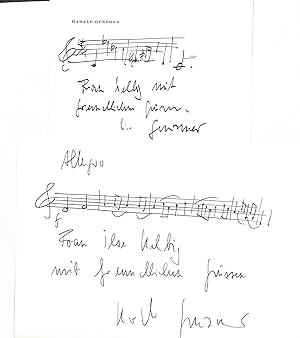 HARALD GENZMER
Frau Helbig mit
freundlichen Grüssen
Genzmer
Allegro
f
Frau Ilse Helbig
mit freundlichen Grüssen
Genzmer